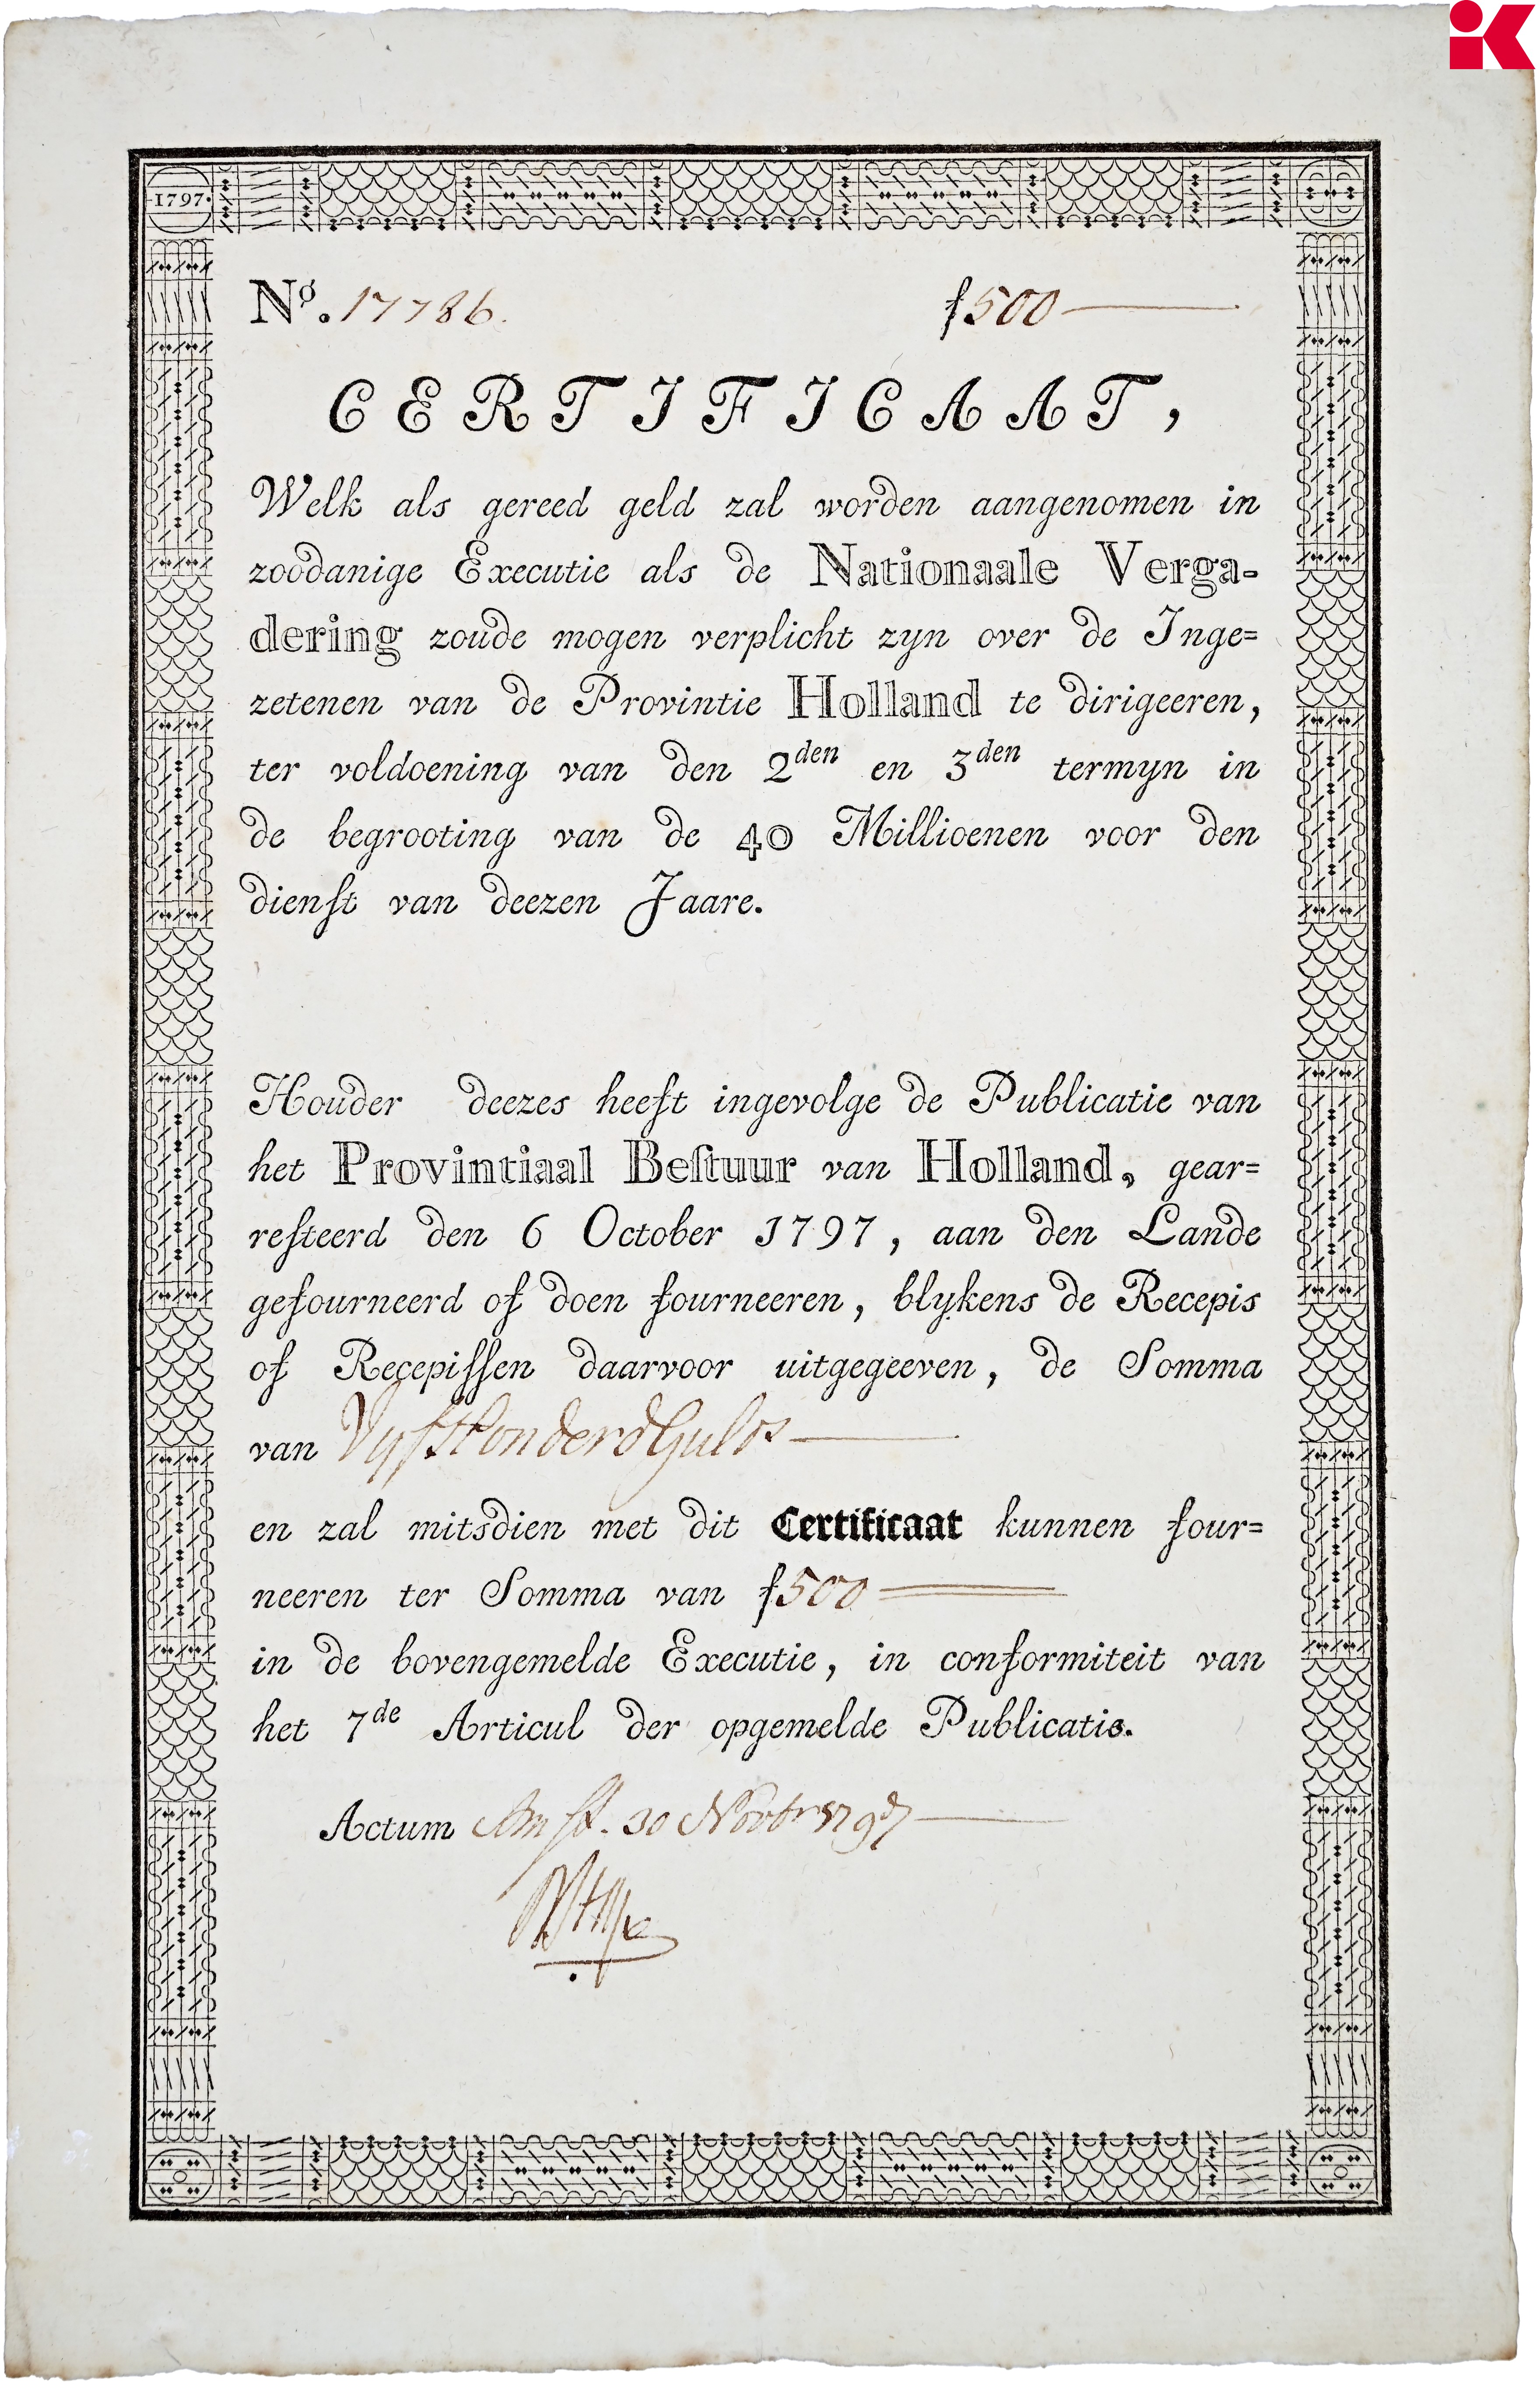 1797.
No. 17786. f 500
CERTIFICAAT,
Welk als gereed geld zal worden aangenomen in
zoodanige Executie als de Nationaale Verga-
dering zoude mogen verplicht zyn over de Inge=
zetenen van de Provintie Holland te dirigeeren,
ter voldoening van den 2den en 3den termyn in
de begrooting van de 40 Millioenen voor den
dienſt van deezen Jaare.
Houder deezes heeft ingevolge de Publicatie van
het Provintiaal Beſtuur van Holland, gear=
reſteerd den 6 October 1797, aan den Lande
gefourneerd of doen fourneeren, blykens de Recepis
of Recepiſſen daarvoor uitgegeeven, de Somma
van Vyf Honderd Gulds
en zal mitsdien met dit Certificaat kunnen four=
neeren ter Somma van f 500
in de bovengemelde Executie, in conformiteit van
het 7de Articul der opgemelde Publicatie.
Actum Amst. 30 Novbr 1797